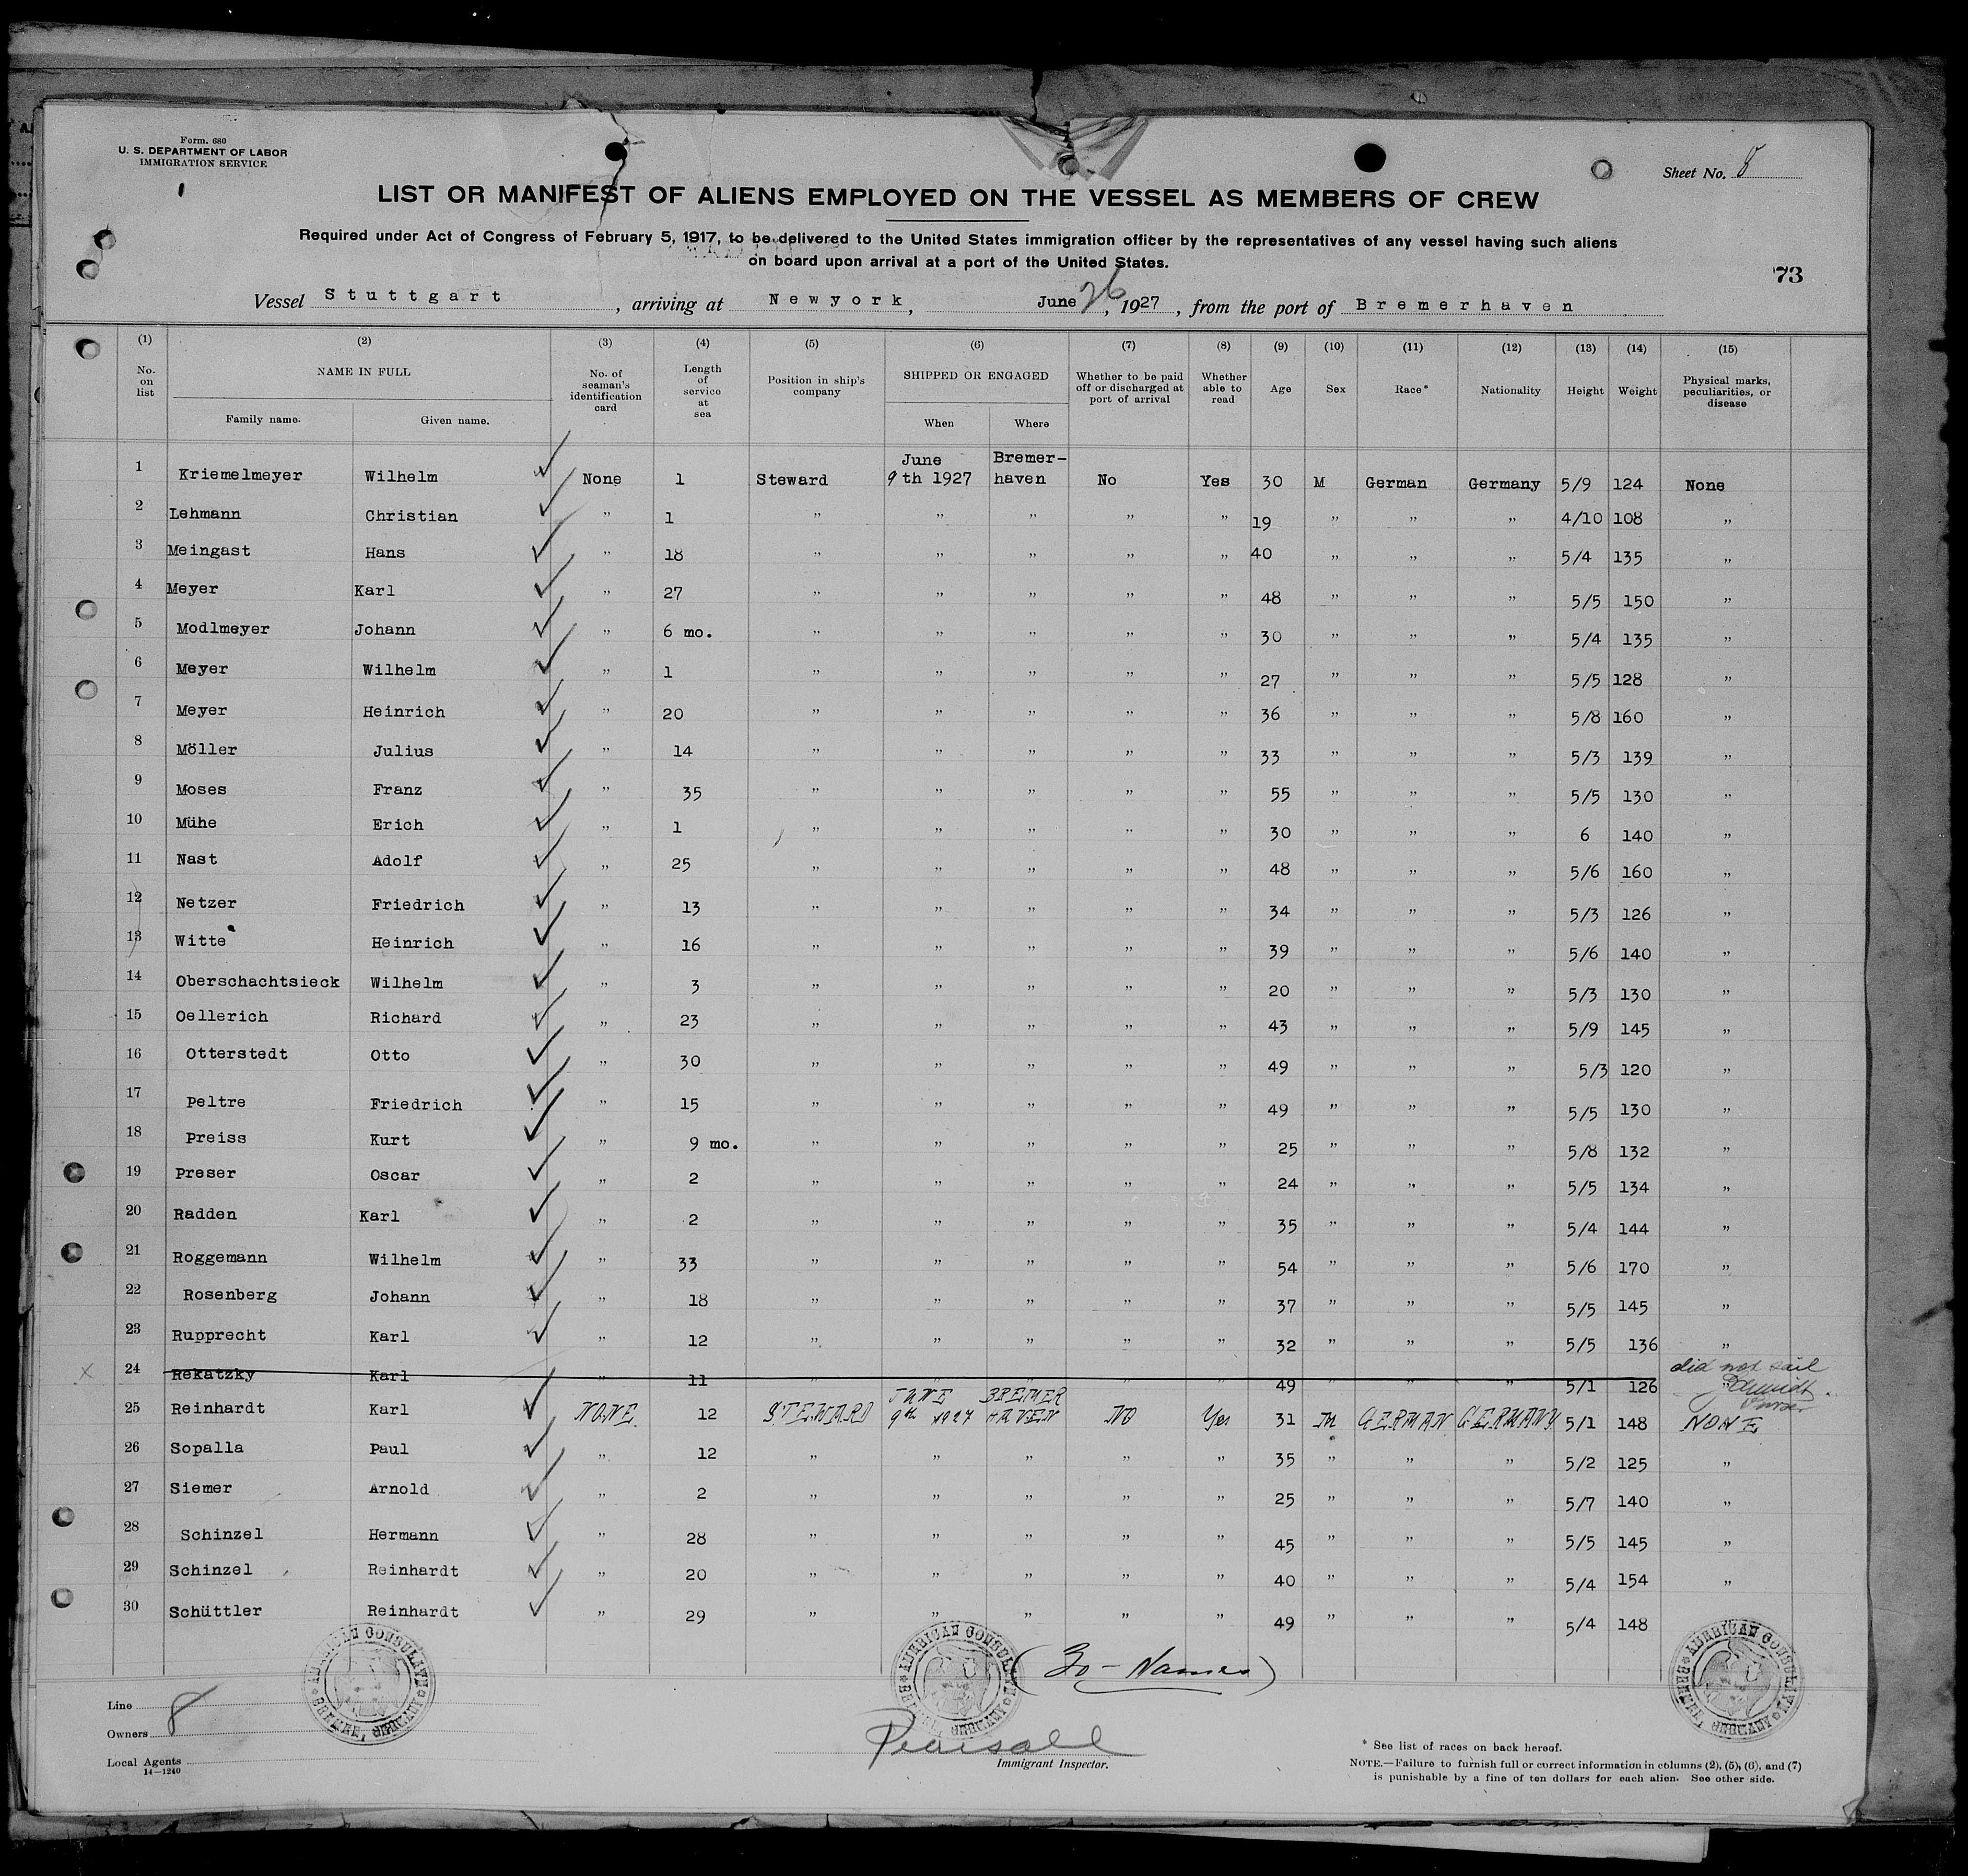 Form. 680
U. S. DEPARTMENT OF LABOR
IMMIGRATION SERVICE
Sheet No. 8
LIST OR MANIFEST OF ALIENS EMPLOYED ON THE VESSEL AS MEMBERS OF CREW
Required under Act of Congress of February 5, 1917, to be delivered to the United States immigration officer by the representatives of any vessel having such aliens
on board upon arrival at a port of the United States.
73
Vessel Stuttgart, arriving at Newyork, June 26, 1927, from the port of Bremerhaven
(1) (2) (3) (4) (5) (6) (7) (8) (9) (10) (11) (12) (13) (14) (15)
No. on list NAME IN FULL Family name. Given name. No. of seaman's identification card Length of service at sea Position in ship's company SHIPPED OR ENGAGED When Where Whether to be paid off or discharged at port of arrival Whether able to read Age Sex Race* Nationality Height Weight Physical marks, peculiarities, or disease
1 Kriemelmeyer Wilhelm None 1 Steward June 9th 1927 Bremer-haven No Yes 30 M German Germany 5/9 124 None
2 Lehmann Christian " 1 " " " " " 19 " " " 4/10 108 "
3 Meingast Hans " 18 " " " " " 40 " " " 5/4 135 "
4 Meyer Karl " 27 " " " " " 48 " " " 5/5 150 "
5 Modlmeyer Johann " 6 mo. " " " " " 30 " " " 5/4 135 "
6 Meyer Wilhelm " 1 " " " " " 27 " " " 5/5 128 "
7 Meyer Heinrich " 20 " " " " " 36 " " " 5/8 160 "
8 Möller Julius " 14 " " " " " 33 " " " 5/3 139 "
9 Moses Franz " 35 " " " " " 55 " " " 5/5 130 "
10 Mühe Erich " 1 " " " " " 30 " " " 6 140 "
11 Nast Adolf " 25 " " " " " 48 " " " 5/6 160 "
12 Netzer Friedrich " 13 " " " " " 34 " " " 5/3 126 "
13 Witte Heinrich " 16 " " " " " 39 " " " 5/6 140 "
14 Oberschachtsieck Wilhelm " 3 " " " " " 20 " " " 5/3 130 "
15 Oellerich Richard " 23 " " " " " 43 " " " 5/9 145 "
16 Otterstedt Otto " 30 " " " " " 49 " " " 5/3 120 "
17 Peltre Friedrich " 15 " " " " " 49 " " " 5/5 130 "
18 Preiss Kurt " 9 mo. " " " " " 25 " " " 5/8 132 "
19 Preser Oscar " 2 " " " " " 24 " " " 5/5 134 "
20 Radden Karl " 2 " " " " " 35 " " " 5/4 144 "
21 Roggemann Wilhelm " 33 " " " " " 54 " " " 5/6 170 "
22 Rosenberg Johann " 18 " " " " " 37 " " " 5/5 145 "
23 Rupprecht Karl " 12 " " " " " 32 " " " 5/5 136 "
24 Rekatzky Karl " 11 " " " " " 49 " " " 5/1 126 " did not sail Schmidt. Purser
25 Reinhardt Karl NONE 12 STEWARD JUNE 9th 1927 BREMERHAVEN NO Yes 31 M GERMAN GERMANY 5/1 148 NONE
26 Sopalla Paul " 12 " " " " " 35 " " " 5/2 125 "
27 Siemer Arnold " 2 " " " " " 25 " " " 5/7 140 "
28 Schinzel Hermann " 28 " " " " " 45 " " " 5/5 145 "
29 Schinzel Reinhardt " 20 " " " " " 40 " " " 5/4 154 "
30 Schüttler Reinhardt " 29 " " " " " 49 " " " 5/4 148 "
(30 - Names)
AMERICAN CONSULATE BREMEN, GERMANY
AMERICAN CONSULATE BREMEN, GERMANY
AMERICAN CONSULATE BREMEN, GERMANY
Line
Owners 8
Local Agents
14—1240
Pearsall
Immigrant Inspector.
* See list of races on back hereof.
NOTE.—Failure to furnish full or correct information in columns (2), (5), (6), and (7)
is punishable by a fine of ten dollars for each alien. See other side.